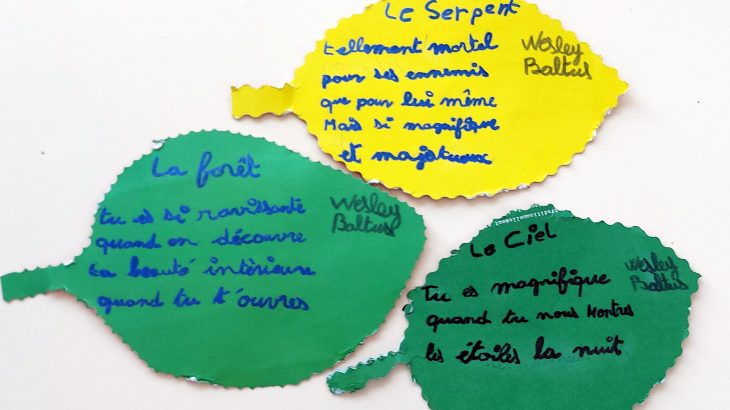 Le Serpent
tellement mortel
pour ses ennemis
que pour lui même
Mais si magnifique
et majestueux
Wesley
Baltus
La forêt
tu es si ravissante
quand on découvre
ta beauté intèrieure
quand tu t'ouvres
Wesley
Baltus
Le Ciel
Tu es magnifique
quand tu nous Montres
les étoiles la nuit
Wesley
Baltus